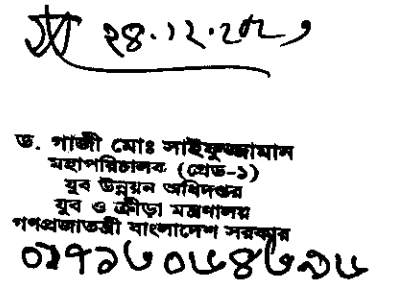 ২৪.১২.২০২৫
ড. গাজী মোঃ সাইফুজ্জামান
মহাপরিচালক (গ্রেড-১)
যুব উন্নয়ন অধিদপ্তর
যুব ও ক্রীড়া মন্ত্রণালয়
গণপ্রজাতন্ত্রী বাংলাদেশ সরকার